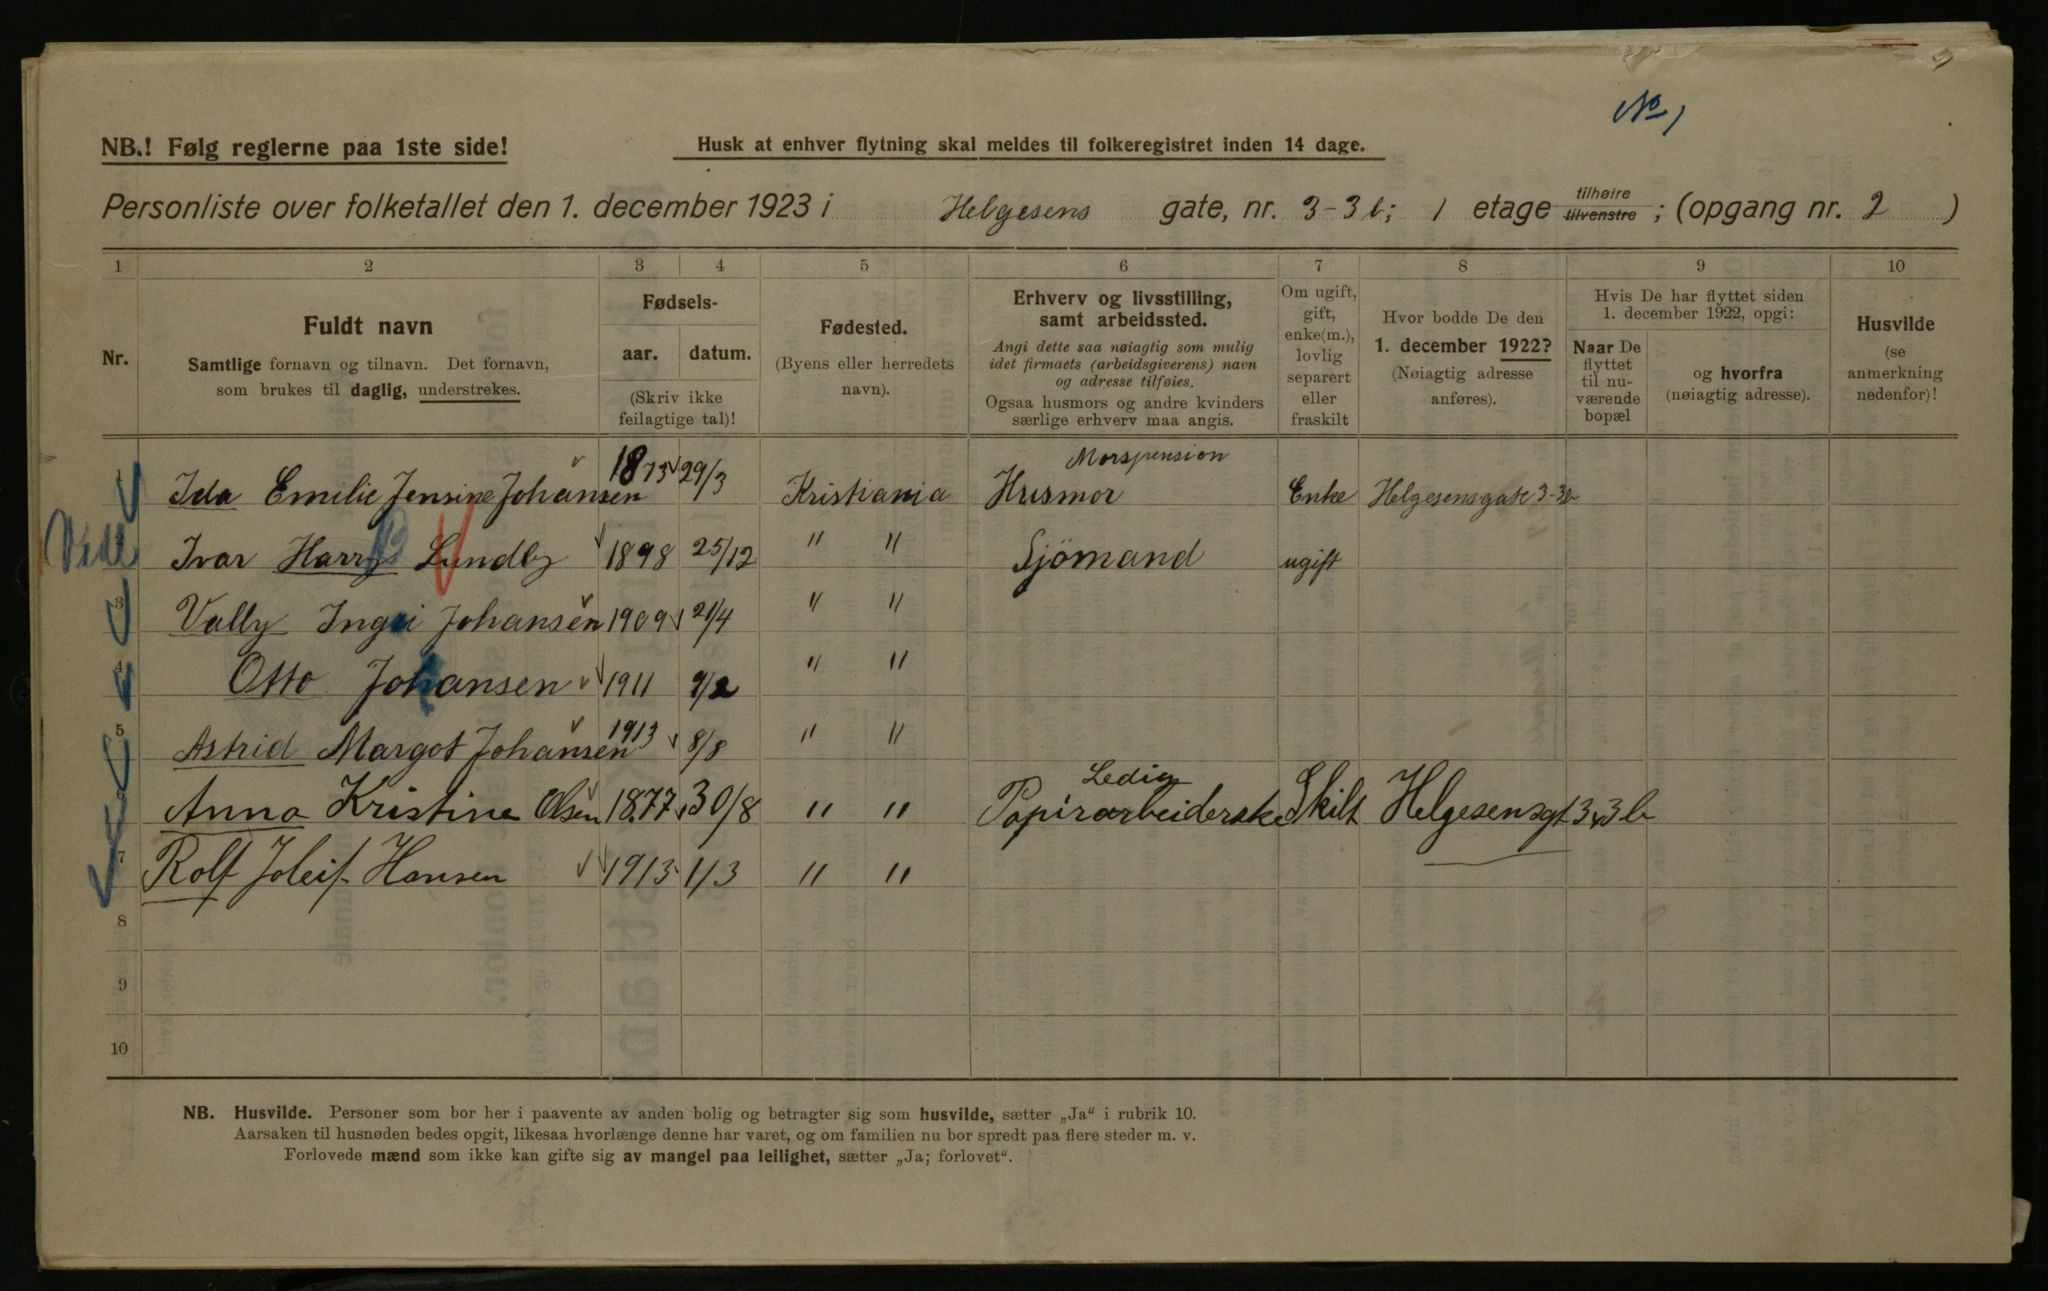 No 1
NB.! Følg reglerne paa 1ste side!
Husk at enhver flytning skal meldes til folkeregistret inden 14 dage.
Personliste over folketallet den 1. december 1923 i Helgesens gate, nr. 3-3b; 1 etage tilhøire tilvenstre ; (opgang nr. 2 )
1 2 3 4 5 6 7 8 9 10
Nr.
Fuldt navn
Samtlige fornavn og tilnavn. Det fornavn,
som brukes til daglig, understrekes.
Fødsels-
aar. datum.
(Skriv ikke
feilagtige tal)!
Fødested.
(Byens eller herredets
navn).
Erhverv og livsstilling,
samt arbeidssted.
Angi dette saa nøiagtig som mulig
idet firmaets (arbeidsgiverens) navn
og adresse tilføies.
Ogsaa husmors og andre kvinders
særlige erhverv maa angis.
Om ugift,
gift,
enke(m.),
lovlig
separert
eller
fraskilt
Hvor bodde De den
1. december 1922?
(Nøiagtig adresse
anføres).
Hvis De har flyttet siden
1. december 1922, opgi:
Naar De
flyttet
til nu-
værende
bopæl
og hvorfra
(nøiagtig adresse).
Husvilde
(se
anmerkning
nedenfor)!
Morspension
1 Ida Emilie Jensine Johansen 1873 29/3 Kristiania Husmor Enke Helgesensgate 3-3b
Ivar Harry Lundby 1898 25/12 " " Sjömand ugift
3 Vally Ingri Johansen 1909 21/4 " "
4 Otto Johansen 1911 9/2 " "
5 Astrid Margot Johansen 1913 8/8 " "
Ledig
6 Anna Kristine Olsen 1877 30/8 " " Papirarbeiderske Skilt Helgesensgt 3 3b
7 Rolf Joleif Hansen 1913 1/3 " "
8
9
10
NB. Husvilde. Personer som bor her i paavente av anden bolig og betragter sig som husvilde, sætter „Ja“ i rubrik 10.
Aarsaken til husnøden bedes opgit, likesaa hvorlænge denne har varet, og om familien nu bor spredt paa flere steder m. v.
Forlovede mænd som ikke kan gifte sig av mangel paa leilighet, sætter „Ja; forlovet“.